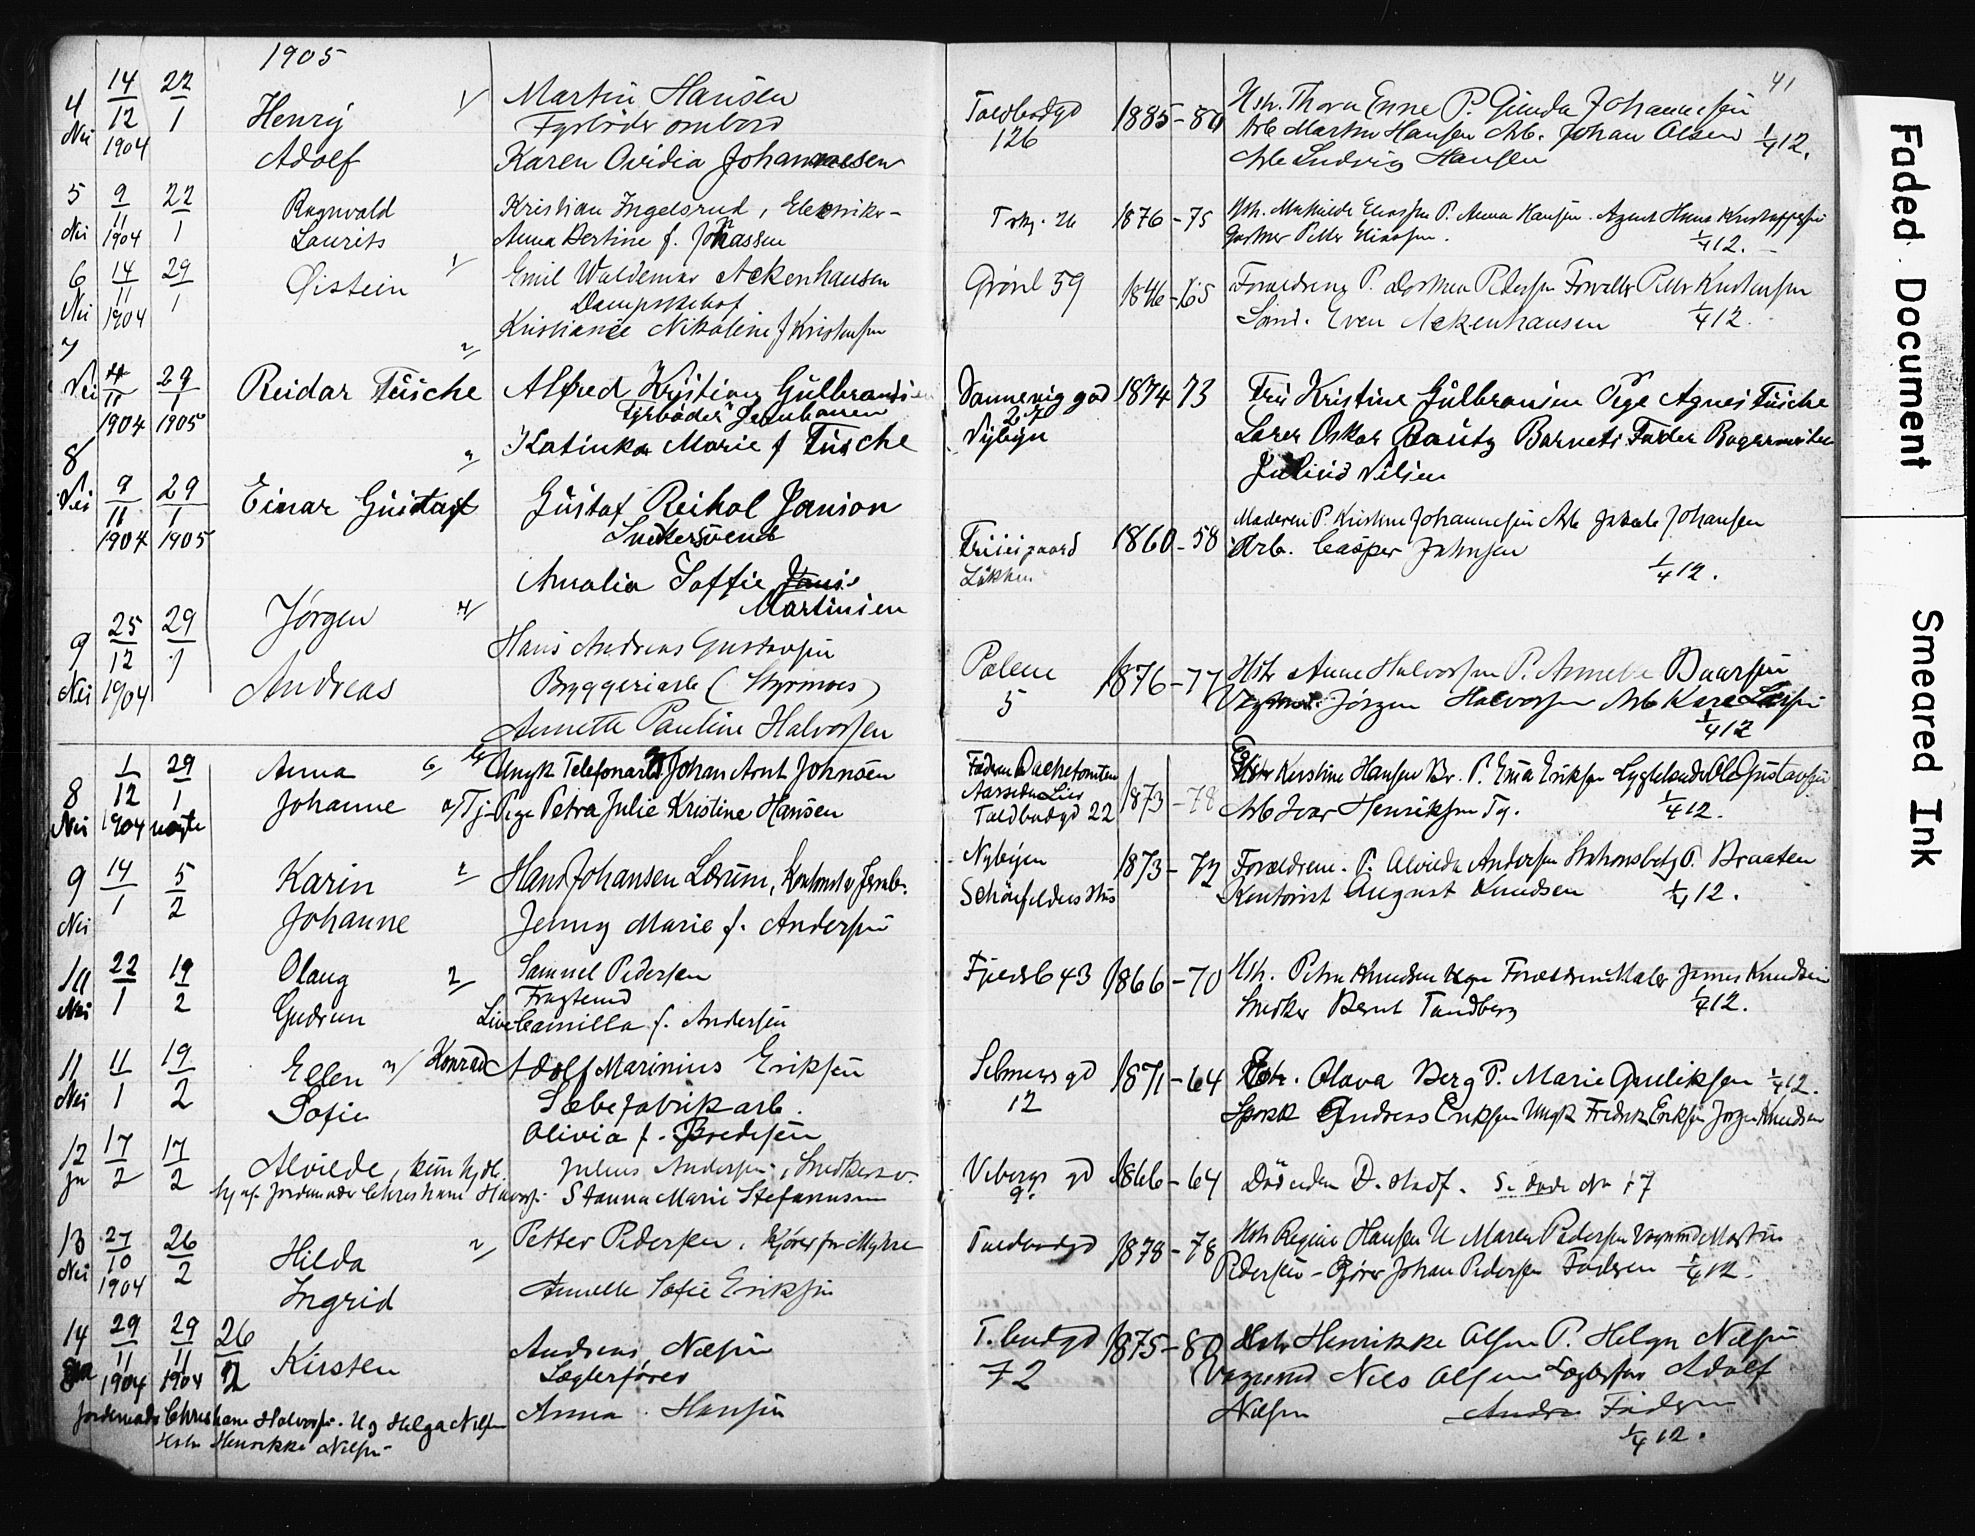 1905
41
4 14/12 1904 22/1 Nei
Henry Adolf
Martin Hansen
Fyrbøder ombord
Karen Ovidia Johannesen
Toldbodgd 126
1885 - 80
Hstr. Thora Enne P. Gunda Johannesen
Arb Martin Hansen Arb. Johan Olsen 1/4 12.
Arb Ludvig Hansen
5 9/11 1904 22/1 Nei
Ragnvald
Laurits
Kristian Ingelsrud,
Anna Bertine f. Johnassen
26
1876 - 75
Hstr. Mathilde Eliassen P. Anna Hansen. Agent Hans Kristoffersen
Gartner Petter Eliassen. 1/4 12.
6 14/11 1904 29/1 Nei
Øistein
Emil Waldemar Ackenhausen
Kristiane Nikoline f Kristensen
Grønl 59
1846 - 65
Forældrene P. Dorthea Pedersen Forvalter Petter Kristensen
Even Ackenhausen 1/4 12.
7 Nei
11 1904 29/1 1905
Reidar Tusche
Alfred Kristian Gulbrandsen
Fyrbøder Jernbanen
Katinka Marie f Tusche
Dannevig gad
27
Nybyen
1874 73
Fru Kristine Gulbransen Pige Agnes Tusche
Lærer Oskar Bautz Barnets Fader Bagermester
Julius Nilsen
8 Nei
9/11 1904 29/1 1905
Einar Gustaf
Gustaf Reihol Janson
Snekersvend
Amalia Soffie
Martinsen
Løkken
1860 - 58
Moderen P. Kristine Johannesen Arb Johansen
Arb. Casper Johnsen
1/4 12.
9 25/12 1904 29/1 Nei
Jørgen
Andreas
Hans Andreas Gustavsen
Bryggeriarb (Styrmoes)
Annette Pauline Halvorsen
Palene
5
1876 - 77
Hstr Anne Halvorsen P. Annette Baarsen
Vognm. Jørgen Halvorsen Arb Karl Larsen
1/4 12
8 1/12 1904 29/1 Nei
Anna
Johanne
Ungk Telefonarb. Johan Arnt Johnsen
Tj. Pige Petra Julie Kristine Hansen
Faderen Bachetomten
Lier
Toldbodgd 22
1873 - 78
Kirstine Hansen Br. P. Emma Eriksen Ole Gustavsen
Arb Ivar Henriksen Tg. 1/4 12.
9 14/1 5/2 Nei
Karin
Johanne
Hans Johansen Lærum, Kontorist v Jernb.
Jenny Marie f. Andersen
Nybyen
Schönfelders Hus
1873 - 72
Forældrene. P. Alvilda Andersen Stationsbetj P. Braaten
Kontorist August Knudsen 1/4 12.
10 22/1 19/2 Nei
Olaug
Gudrun
Samuel Pedersen
Live Camilla f. Andersen
Fjeldsb 43
1866 - 70
Hstr. Petra Knudsen Forældrene Maler James Knudsen
Snedker Bernt Tandberg 1/4 12.
11 11/1 19/2 Nei
Ellen
Sofie
Konrad Adolf Marinius Eriksen
Sæbefabrikarb.
Olivia f. Bredesen
Selmers gd
12
1871 - 64
Hstr. Olava Berg P. Marie Gulliksen 1/4 12.
Andreas Eriksen Ungk Fredrik Eriksen Jørgen Knudsen
12 17/2 17/2 Ja
Alvilde, kun hjdt
af Jordemoder Christiane Halvorsen
Julius Andersen, Snedkersv.
Stanna Marie Stefanusen
Vibergs gd
9.
1866 - 64
Døbt uden D. stadf. S. døde No 17
13 27/10 1904 26/2 Nei
Hilda
Ingrid
Petter Pedersen, Kjører for Myhre
Annette Sofie Eriksen
Toldbodgd
1878 - 78
Hstr Regine Hansen U Maren Pedersen Vognmd Martin
Pedersen - Kjører Johan Pedersen Faderen 1/4 12.
14 29/11 1904 29/11 1904 26/2
Kirsten
Jordemoder Christiane Halvorsen. Ug Helga Nilsen
Hstr Henrikke Nilsen
Andreas Nilsen
Anna Hansen
T. bodgd
72
1875 - 80
Hstr Henrikke Olsen P. Helga Nilsen
Vognmd Nils Olsen Adolf
Nilsen Faderen
1/4 12.
Faded Document
Smeared Ink